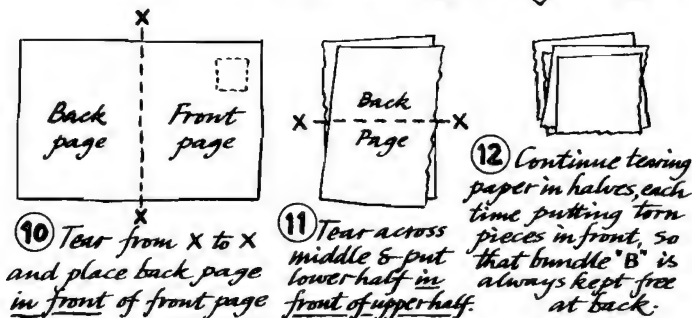 X
Back
page
Front
page
X
10 Tear from X to X
and place back page
in front of front page
Back
X X
Page
11 Tear across
middle & put
lower half in
front of upper half.
12 Continue tearing
paper in halves, each
time putting torn
pieces in front, so
that bundle "B" is
always kept free
at back.